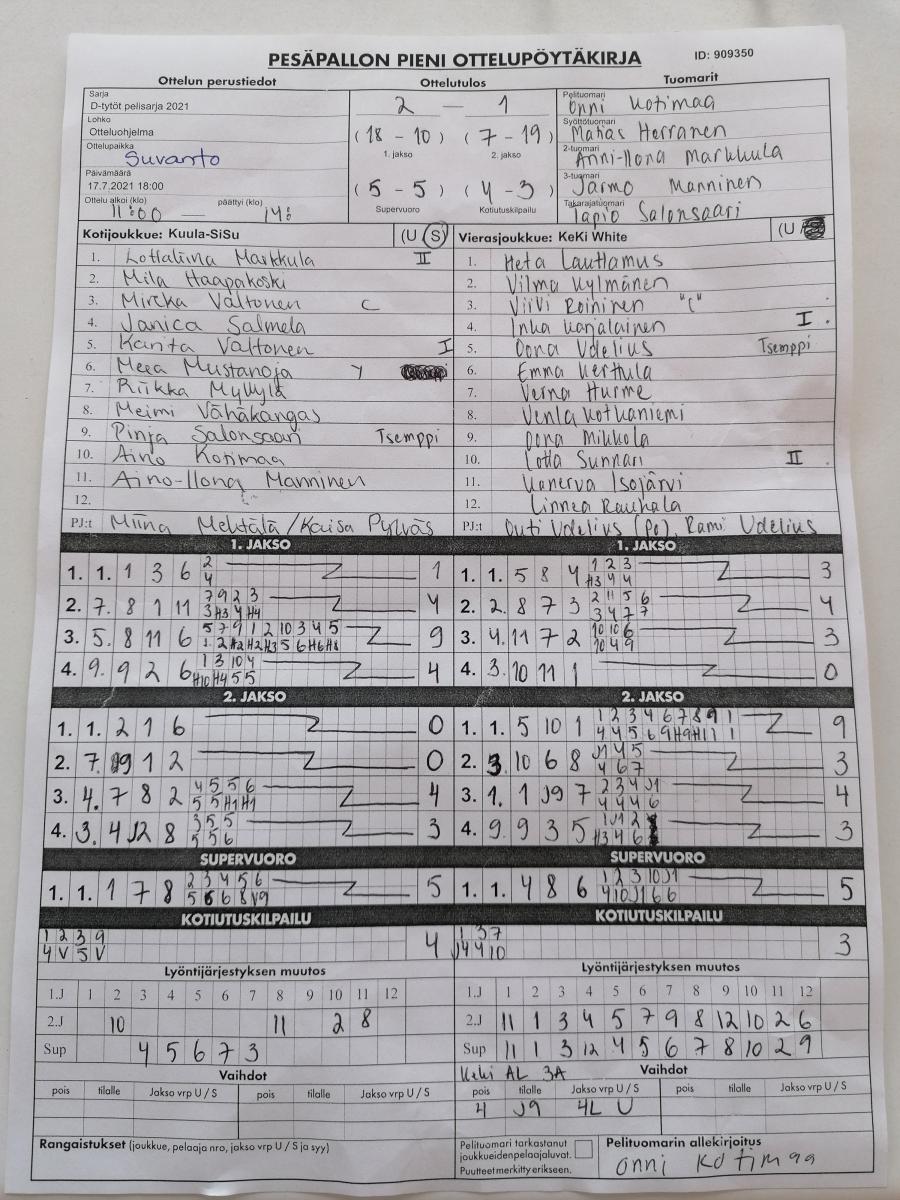 PESÄPALLON PIENI OTTELUPÖYTÄKIRJA ID: 909350
Ottelun perustiedot Ottelutulos Tuomarit
Sarja
D-tytöt pelisarja 2021
Lohko
Otteluohjelma
Ottelupaikka
Suvanto
Päivämäärä
17.7.2021 18:00
Ottelu alkoi (klo) päättyi (klo)
11:00 — 14:
2 — 1
(18 - 10) (7 - 19)
1. jakso 2. jakso
(5 - 5) (4 - 3)
Supervuoro Kotiutuskilpailu
Pelituomari
Onni Kotimaa
Syöttötuomari
Matias Herranen
2-tuomari
Anni-Ilona Markkula
3-tuomari
Jarmo Manninen
Takarajatuomari
Tapio Salonsaari
Kotijoukkue: Kuula-SiSu (U S)
1. Lottaliina Markkula II
2. Mila Haapakoski
3. Mirkka Valtonen C
4. Janica Salmela
5. Karita Valtonen I
6. Meea Mustanoja Y
7. Riikka Myllylä
8. Meimi Vähäkangas
9. Pinja Salonsaari Tsemppi
10. Aino Kotimaa
11. Aino-Ilona Manninen
12.
PJ:t Miina Mehtälä / Kaisa Pylväs
Vierasjoukkue: KeKi White (U /
1. Heta Lauttamus
2. Vilma Kylmänen
3. Viivi Roininen "C"
4. Inka Karjalainen I
5. Oona Udelius Tsemppi
6. Emma Kerttula
7. Verna Hurme
8. Venla Kotkaniemi
9. Oona Mikkola
10. Lotta Sunnari II
11. Kanerva Isojärvi
12. Linnea Rauhala
PJ:t Outi Udelius (Po), Rami Udelius
1. JAKSO 1. JAKSO
1. 1. 1 3 6 2 1
4
2. 7. 8 1 11 7 9 2 3 4
3 H3 4 H4
3. 5. 8 11 6 5 7 9 1 2 10 3 4 5 9
1 2 H2 H2 H3 5 6 H6 H8
4. 9. 9 2 6 1 3 10 4 4
H10 H4 5 5
1. 1. 5 8 4 1 2 3 3
H3 4 4
2. 2. 8 7 3 2 11 5 6 4
3 4 7 7
3. 4. 11 7 2 10 10 6 3
10 4 9
4. 3. 10 11 1 0
2. JAKSO 2. JAKSO
1. 1. 2 1 6 0
2. 7. 9 1 2 0
3. 4. 7 8 2 4 5 5 6 4
5 5 H1 H1
4. 3. 4 J2 8 3 5 5 3
5 5 6
1. 1. 5 10 1 1 2 3 4 6 7 8 9 1 9
4 4 5 6 9 H9 H1 1 1
2. 3. 10 6 8 J1 4 5 3
4 6 7
3. 1. 1 J9 7 2 3 4 J1 4
4 4 4 6
4. 9. 9 3 5 1 J1 2 3
H3 4 6
SUPERVUORO SUPERVUORO
1. 1. 1 7 8 2 3 4 5 6 5
5 6 6 8 V9
1. 1. 4 8 6 1 2 3 10 J1 5
4 10 J1 6 6
KOTIUTUSKILPAILU KOTIUTUSKILPAILU
1 2 3 9 4
4 V 5 V
1 3 7 3
J4 4 10
Lyöntijärjestyksen muutos
1.J 1 2 3 4 5 6 7 8 9 10 11 12
2.J 10 11 2 8
Sup 4 5 6 7 3
Lyöntijärjestyksen muutos
1.J 1 2 3 4 5 6 7 8 9 10 11 12
2.J 11 1 3 4 5 7 9 8 12 10 2 6
Sup 11 1 3 12 4 5 6 7 8 10 2 9
Vaihdot
pois tilalle Jakso vrp U / S pois tilalle Jakso vrp U / S
KeKi AL 3A Vaihdot
pois tilalle Jakso vrp U / S pois tilalle Jakso vrp U / S
4 J9 4L U
Rangaistukset (joukkue, pelaaja nro, jakso vrp U / S ja syy)
Pelituomari tarkastanut
joukkueiden pelaajaluvat.
Puutteet merkitty erikseen.
Pelituomarin allekirjoitus
Onni Kotimaa